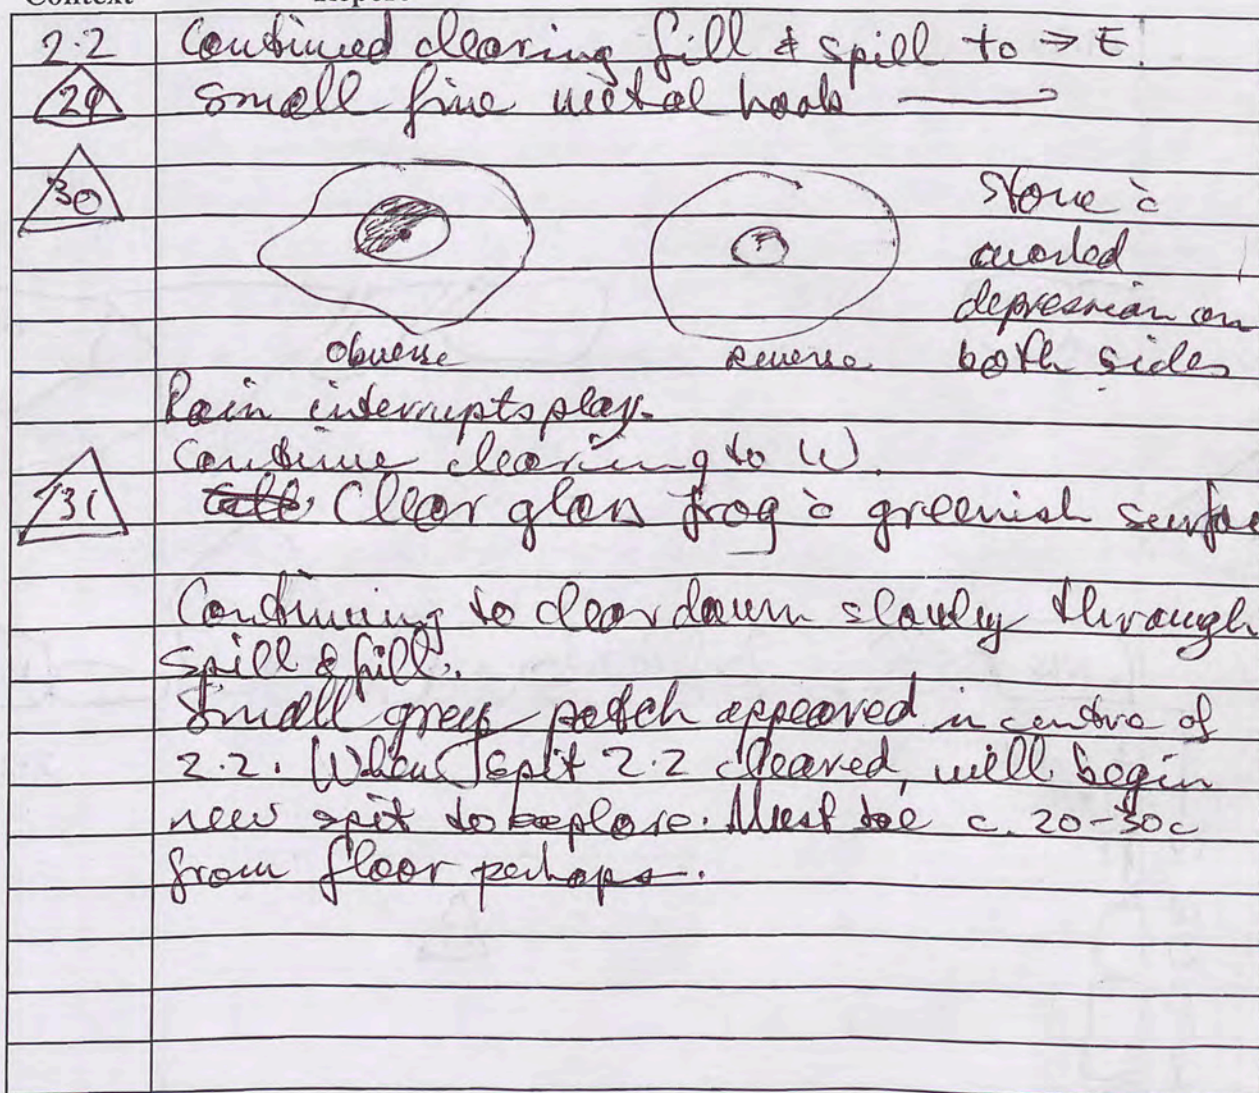 Context
2.2 Continued clearing fill & spill to → E.
29 Small fine metal hook
30
Stone c̄
worked
depression on
both sides
obverse reverse
Rain interrupts play.
Continue clearing to W.
31 Clear glass frag c̄ greenish surfa
Continuing to clear down slowly through
spill & fill.
Small grey patch appeared in centre of
2.2. When spit 2.2 cleared, will begin
new spit to explore. Must be c. 20-30c
from floor perhaps.